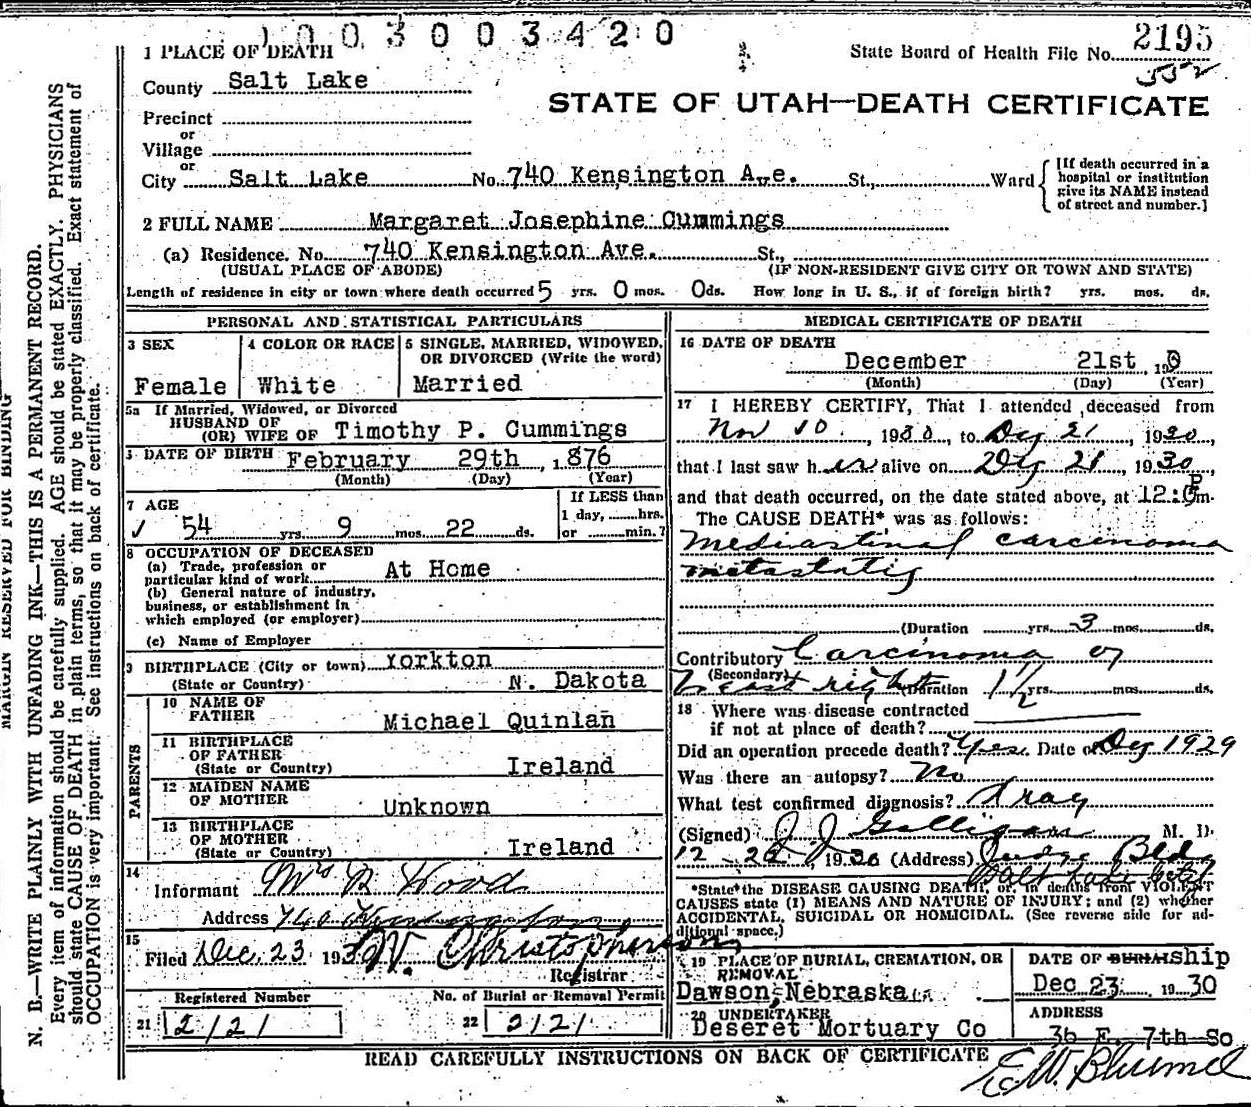 1003003420
1 PLACE OF DEATH
State Board of Health File No. 2195
552
County Salt Lake
STATE OF UTAH—DEATH CERTIFICATE
Precinct
or
Village
or
City Salt Lake No. 740 Kensington Ave. St., Ward
[If death occurred in a
hospital or institution
give its NAME instead
of street and number.]
2 FULL NAME Margaret Josephine Cummings
(a) Residence. No. 740 Kensington Ave. St.,
(USUAL PLACE OF ABODE) (IF NON-RESIDENT GIVE CITY OR TOWN AND STATE)
Length of residence in city or town where death occurred 5 yrs. 0 mos. 0 ds. How long in U. S., if of foreign birth? yrs. mos. ds.
PERSONAL AND STATISTICAL PARTICULARS
3 SEX
Female
4 COLOR OR RACE
White
5 SINGLE, MARRIED, WIDOWED,
OR DIVORCED (Write the word)
Married
5a If Married, Widowed, or Divorced
HUSBAND OF
(OR) WIFE OF Timothy P. Cummings
DATE OF BIRTH February 29th, 1876
(Month) (Day) (Year)
7 AGE
54 yrs. 9 mos. 22 ds.
If LESS than
1 day, hrs.
or min.?
8 OCCUPATION OF DECEASED
(a) Trade, profession or
particular kind of work At Home
(b) General nature of industry,
business, or establishment in
which employed (or employer)
(c) Name of Employer
9 BIRTHPLACE (City or town) Yorkton
(State or Country) N. Dakota
PARENTS
10 NAME OF
FATHER Michael Quinlan
11 BIRTHPLACE
OF FATHER
(State or Country) Ireland
12 MAIDEN NAME
OF MOTHER Unknown
13 BIRTHPLACE
OF MOTHER
(State or Country) Ireland
14
Informant Mrs B Wood
Address 740 Kensington
15
Filed Dec. 23 193 W. Christophersons
Registrar
Registered Number
21 2121
No. of Burial or Removal Permit
22 2121
MEDICAL CERTIFICATE OF DEATH
16 DATE OF DEATH
December 21st, 19
(Month) (Day) (Year)
17 I HEREBY CERTIFY, That I attended deceased from
Nov 10, 1930, to Dec 21, 1930,
that I last saw her alive on Dec 21, 1930,
and that death occurred, on the date stated above, at 12:0 P m.
The CAUSE DEATH* was as follows:
Mediastinal carcinoma
metastatic
(Duration yrs. 3 mos. ds.
Contributory Carcinoma of
(Secondary)
breast right (Duration 1½ yrs. mos. ds.
18 Where was disease contracted
if not at place of death?
Did an operation precede death? Yes. Date of Dec 1929
Was there an autopsy? No
What test confirmed diagnosis? Xray
(Signed) J J Galligan M. D.
12-22 1930 (Address) Judge Bldg
Salt Lake City
*State the DISEASE CAUSING DEATH, or, in deaths from VIOLENT
CAUSES state (1) MEANS AND NATURE OF INJURY; and (2) whether
ACCIDENTAL, SUICIDAL OR HOMICIDAL. (See reverse side for ad-
ditional space.)
19 PLACE OF BURIAL, CREMATION, OR
REMOVAL
Dawson, Nebraska
DATE OF BURIAL ship
Dec 23 1930
20 UNDERTAKER
Deseret Mortuary Co
ADDRESS
36 E. 7th So
READ CAREFULLY INSTRUCTIONS ON BACK OF CERTIFICATE
MARGIN RESERVED FOR BINDING
N. B.—WRITE PLAINLY WITH UNFADING INK—THIS IS A PERMANENT RECORD.
Every item of information should be carefully supplied. AGE should be stated EXACTLY. PHYSICIANS
should state CAUSE OF DEATH in plain terms, so that it may be properly classified. Exact statement of
OCCUPATION is very important. See instructions on back of certificate.